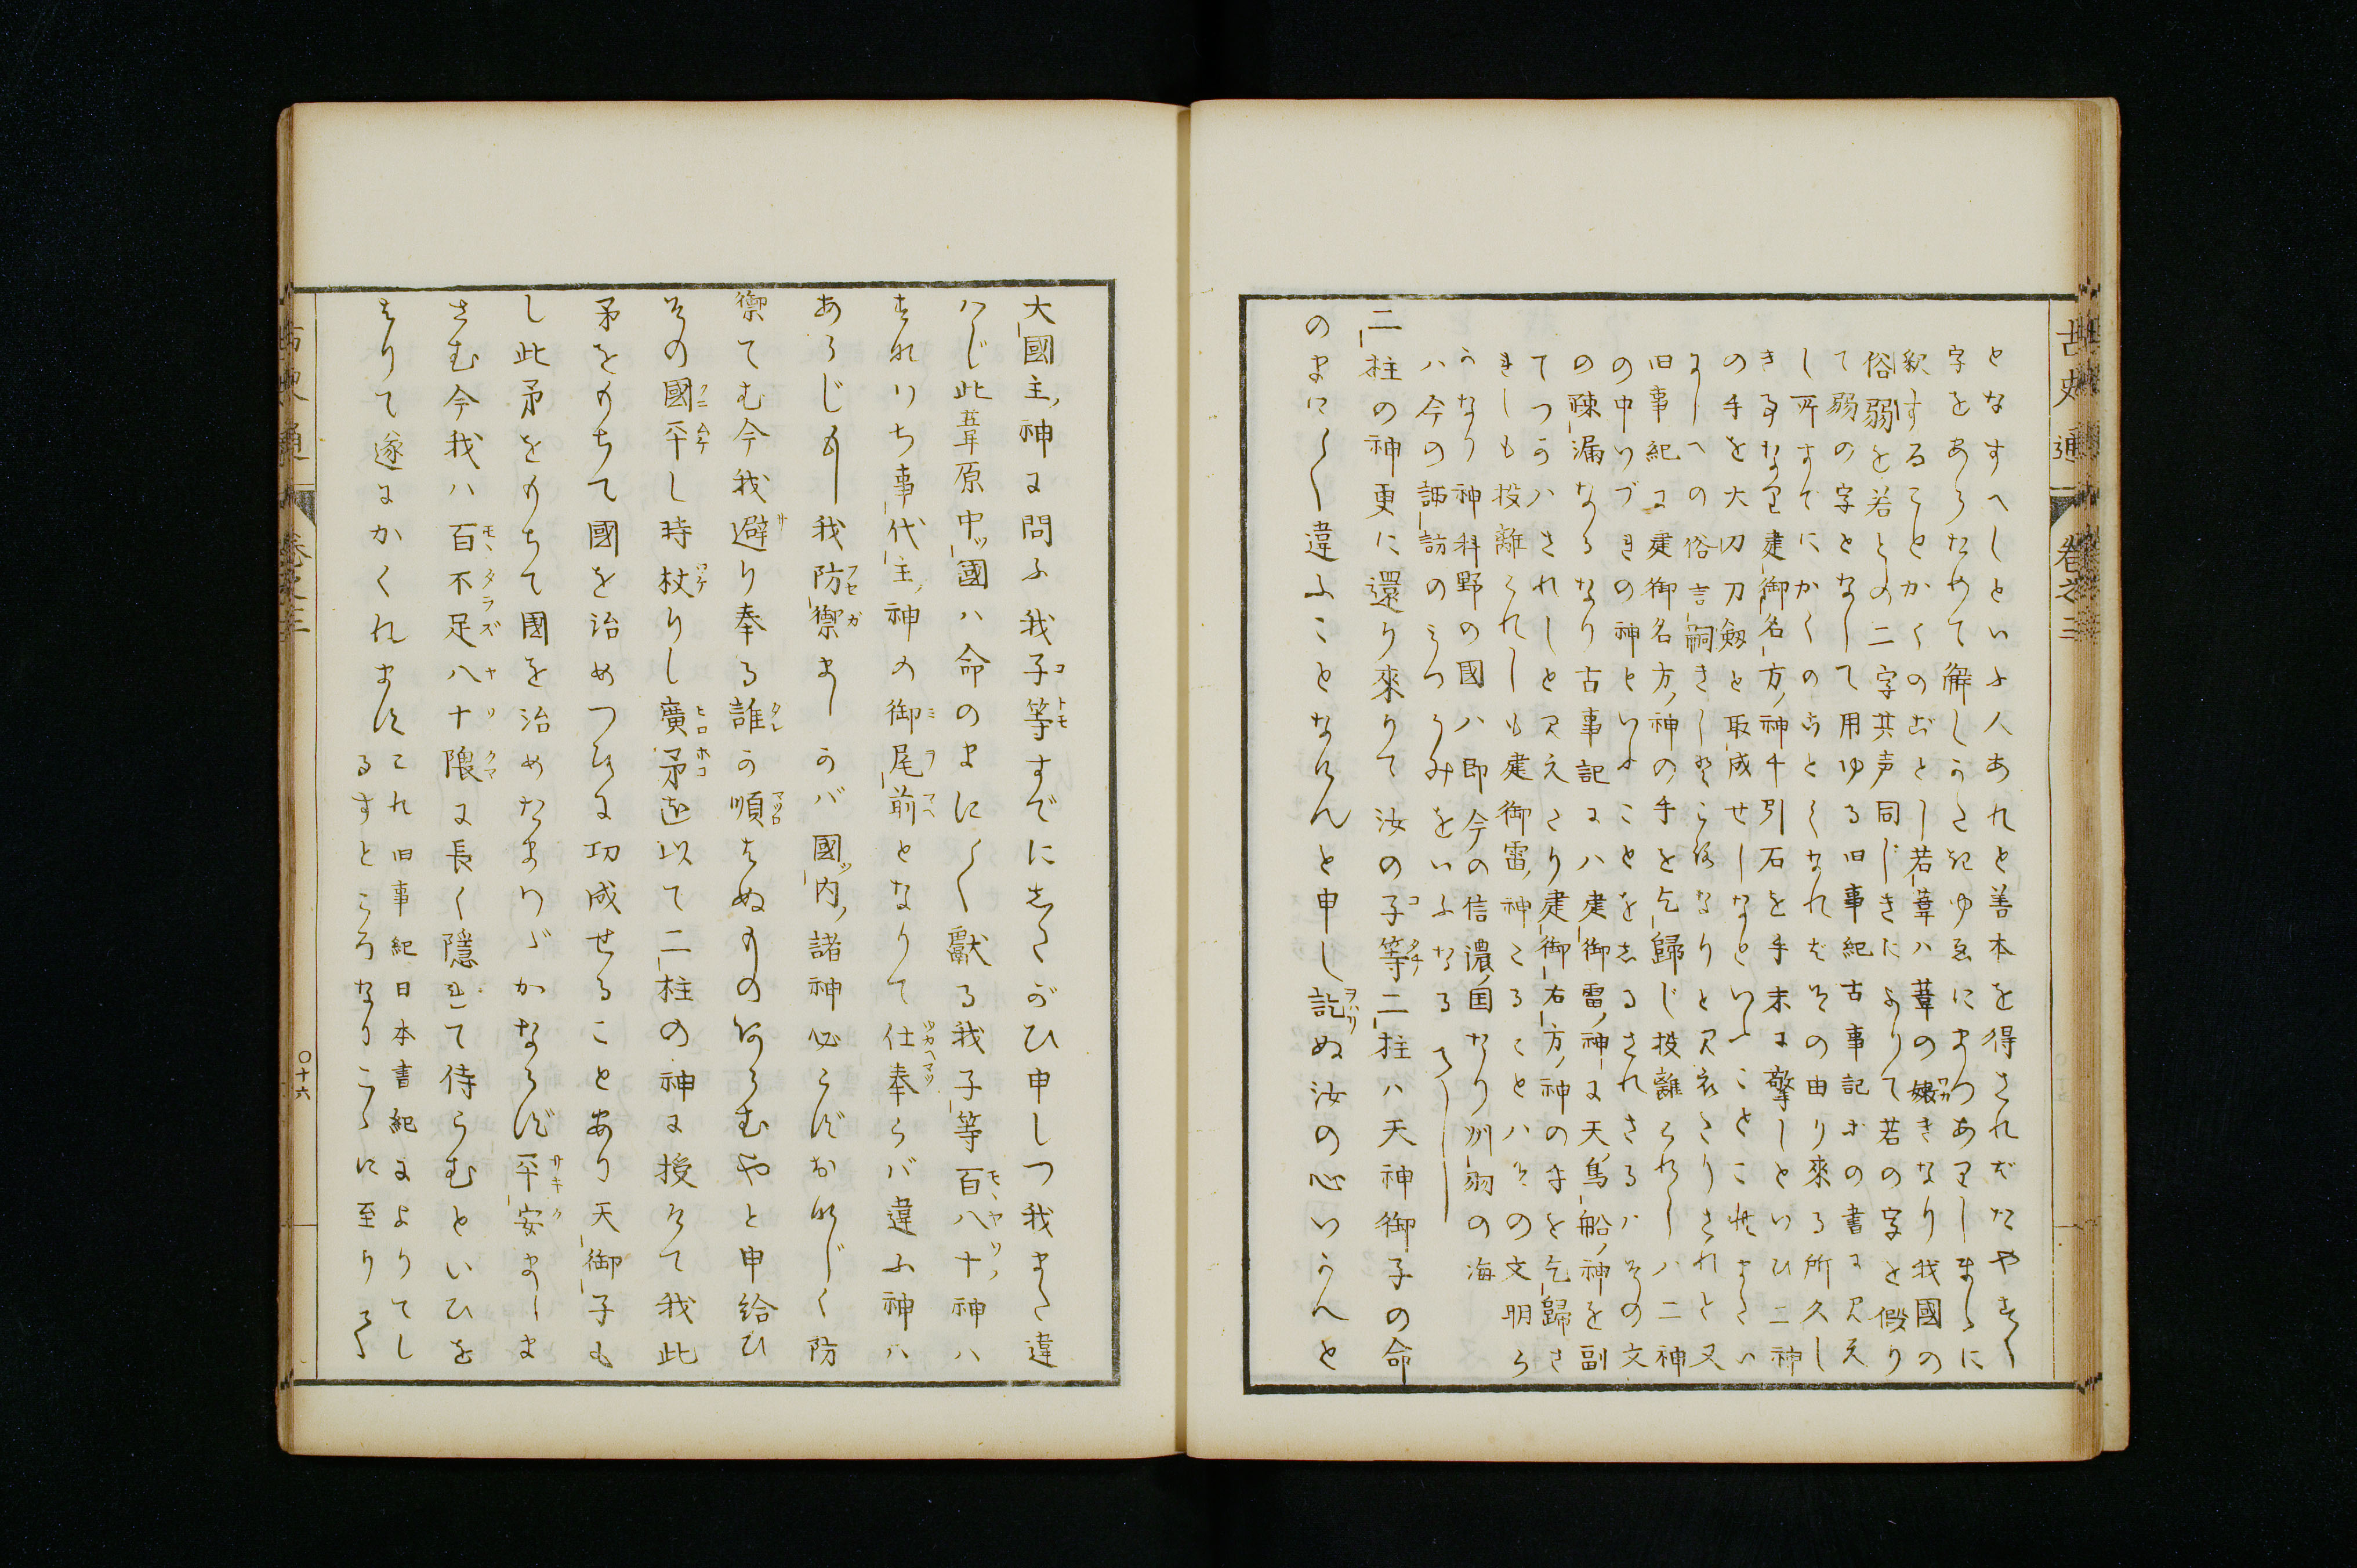 古史通 卷之三
となすへしといふ人あれと善本を得さればたやすく
字をあらためて解しうたきゆゑにまつあましまゝに
釈することかくのごとし若葦ハ葦の嫩きなり我國の
俗弱を若との二字其声同じきによりて若の字を假り
て弱の字となして用ゆる旧事紀古事記等の書に見え
し所すでにかくのごとくなれどその由り來る所久し
きるなり建御名方ノ神千引石を手末に擎しといひ二神
の手を大刀刀劔と取成せしなといふことこれまたい
にしへの俗言嗣きしるこ候なりと見えたりされと又
旧事紀に建御名方ノ神の手を乞歸じ投離られしハ二神
の中いづきの神といふことをしるされさるハその文
の疎漏なるなり古事記にハ建御雷ノ神に天鳥船ノ神を副
てつかハされしと見えたり建御名方ノ神の手を乞歸さ
きしも投離られしも建御雷ノ神たることハその文明ら
かなり神科野の國ハ即今の信濃ノ国なり州羽の海
ハ今の諏訪のみつうみをいふなるへし
二柱の神更に還り來りて汝の子等二柱ハ天神御子の命
のまにく違ふことなけんと申し訖ぬ汝の心いかんと
大國主ノ神に問ふ我子等すでにしたがひ申しつ我また違
ハじ此葦原中ッ國ハ命のまにく獻る我子等百八十神ハ
すなりち事代主ノ神の御尾前となりて仕奉らバ違ふ神ハ
あらじもし我防禦ましかバ國ッ内ノ諸神必らず同じく防
禦てむ今我避り奉る誰か順はぬものあらむやと申給ひ
その國平し時杖りし廣矛を以て二柱の神に授けて我此
矛をもちて國を治めつひに功成せることあり天御子も
し此矛をもちて國を治めたまハゞかならず平安ましま
さむ今我ハ百不足八十隈に長く隱れて侍らむといひを
はりて遂にかくれます
これ旧事紀日本書紀によりてし
るすところなりこゝに至りて
〇十六